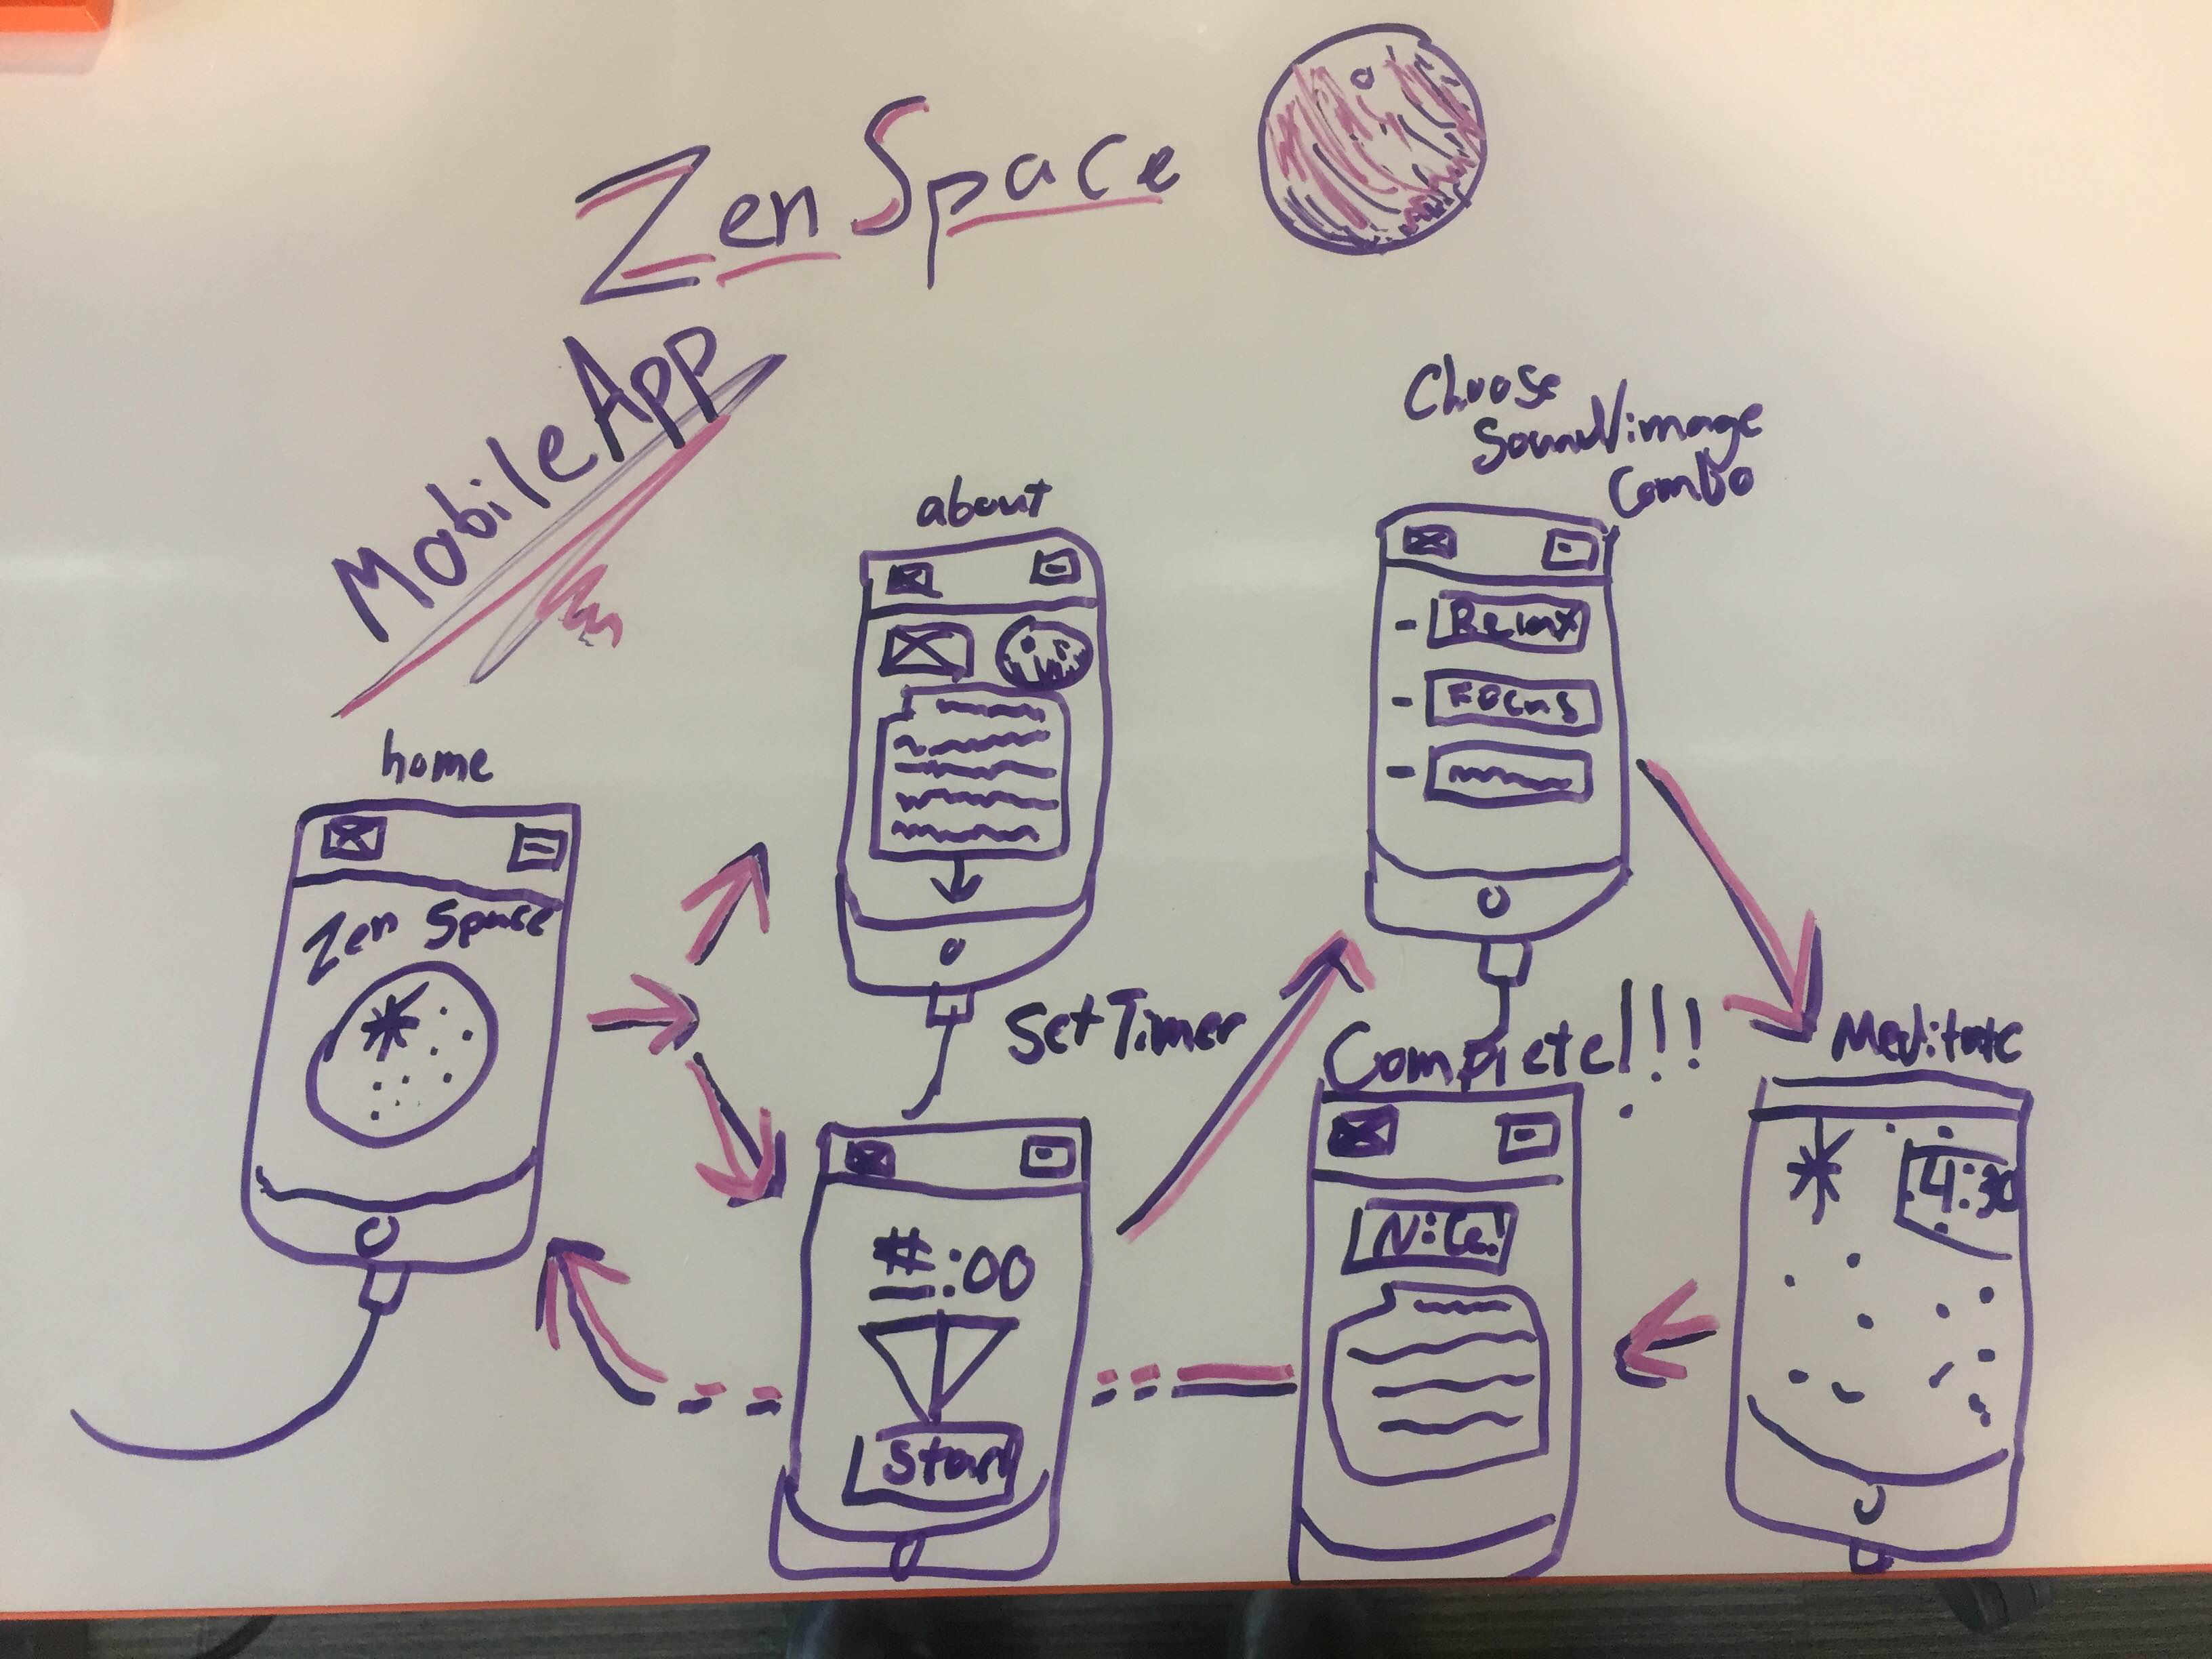 Zen Space
Mobile App
home
Zen Space
about
Set Timer
#:00
Start
Choose
Sound/image
Combo
Relax
Focus
Meditate
4:30
Complete!!!
Nice!